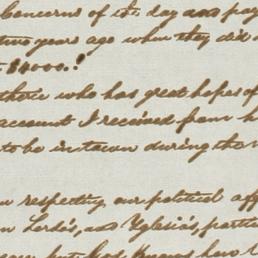 concerns of the day and pay
two years ago when they did
$4000.!
there who has great hopes of
account I received from h
to be in town during the
respecting our political aff
Lerdo's, and Iglesias, parti
now but God knows how